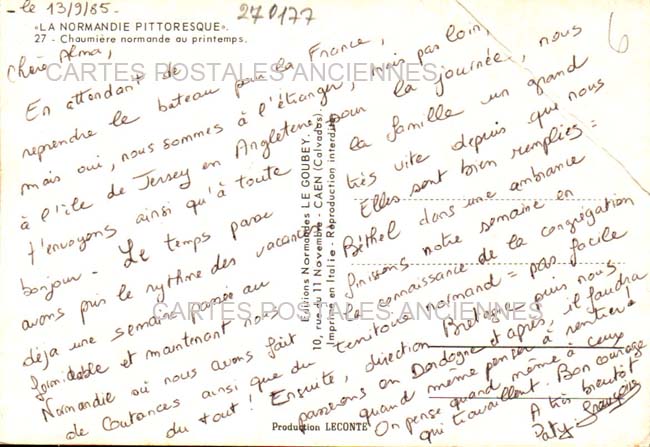 le 13/9/85.
270177
6
«LA NORMANDIE PITTORESQUE».
27 - Chaumière normande au printemps.
Chère Alma,
En attendant de
reprendre le bateau pour la France,
mais oui, nous sommes à l'étranger, mais pas loin,
à l'île de Jersey en Angleterre, pour la journée, nous
t'envoyons ainsi qu'à toute la famille un grand
bonjour. Le temps passe très vite depuis que nous
avons pris le rythme des vacances. Elles sont bien remplies :
déjà une semaine passée au Béthel dans une ambiance
formidable et maintenant nous finissons notre semaine en
Normandie où nous avons fait la connaissance de la congrégation
de Coutances ainsi que du territoire normand = pas facile
du tout ! Ensuite, direction Bretagne puis nous
passerons en Dordogne et après, il faudra
quand même penser à rentrer !
On pense quand même à ceux
qui travaillent. Bon courage
A très bientôt
Paty Françoise
Editions Normandes LE GOUBEY.
10, rue du 11 Novembre - CAEN (Calvados).
Imprimé en Italie - Reproduction interdite
Production LECONTE
CARTES POSTALES ANCIENNES
CARTES POSTALES ANCIENNES